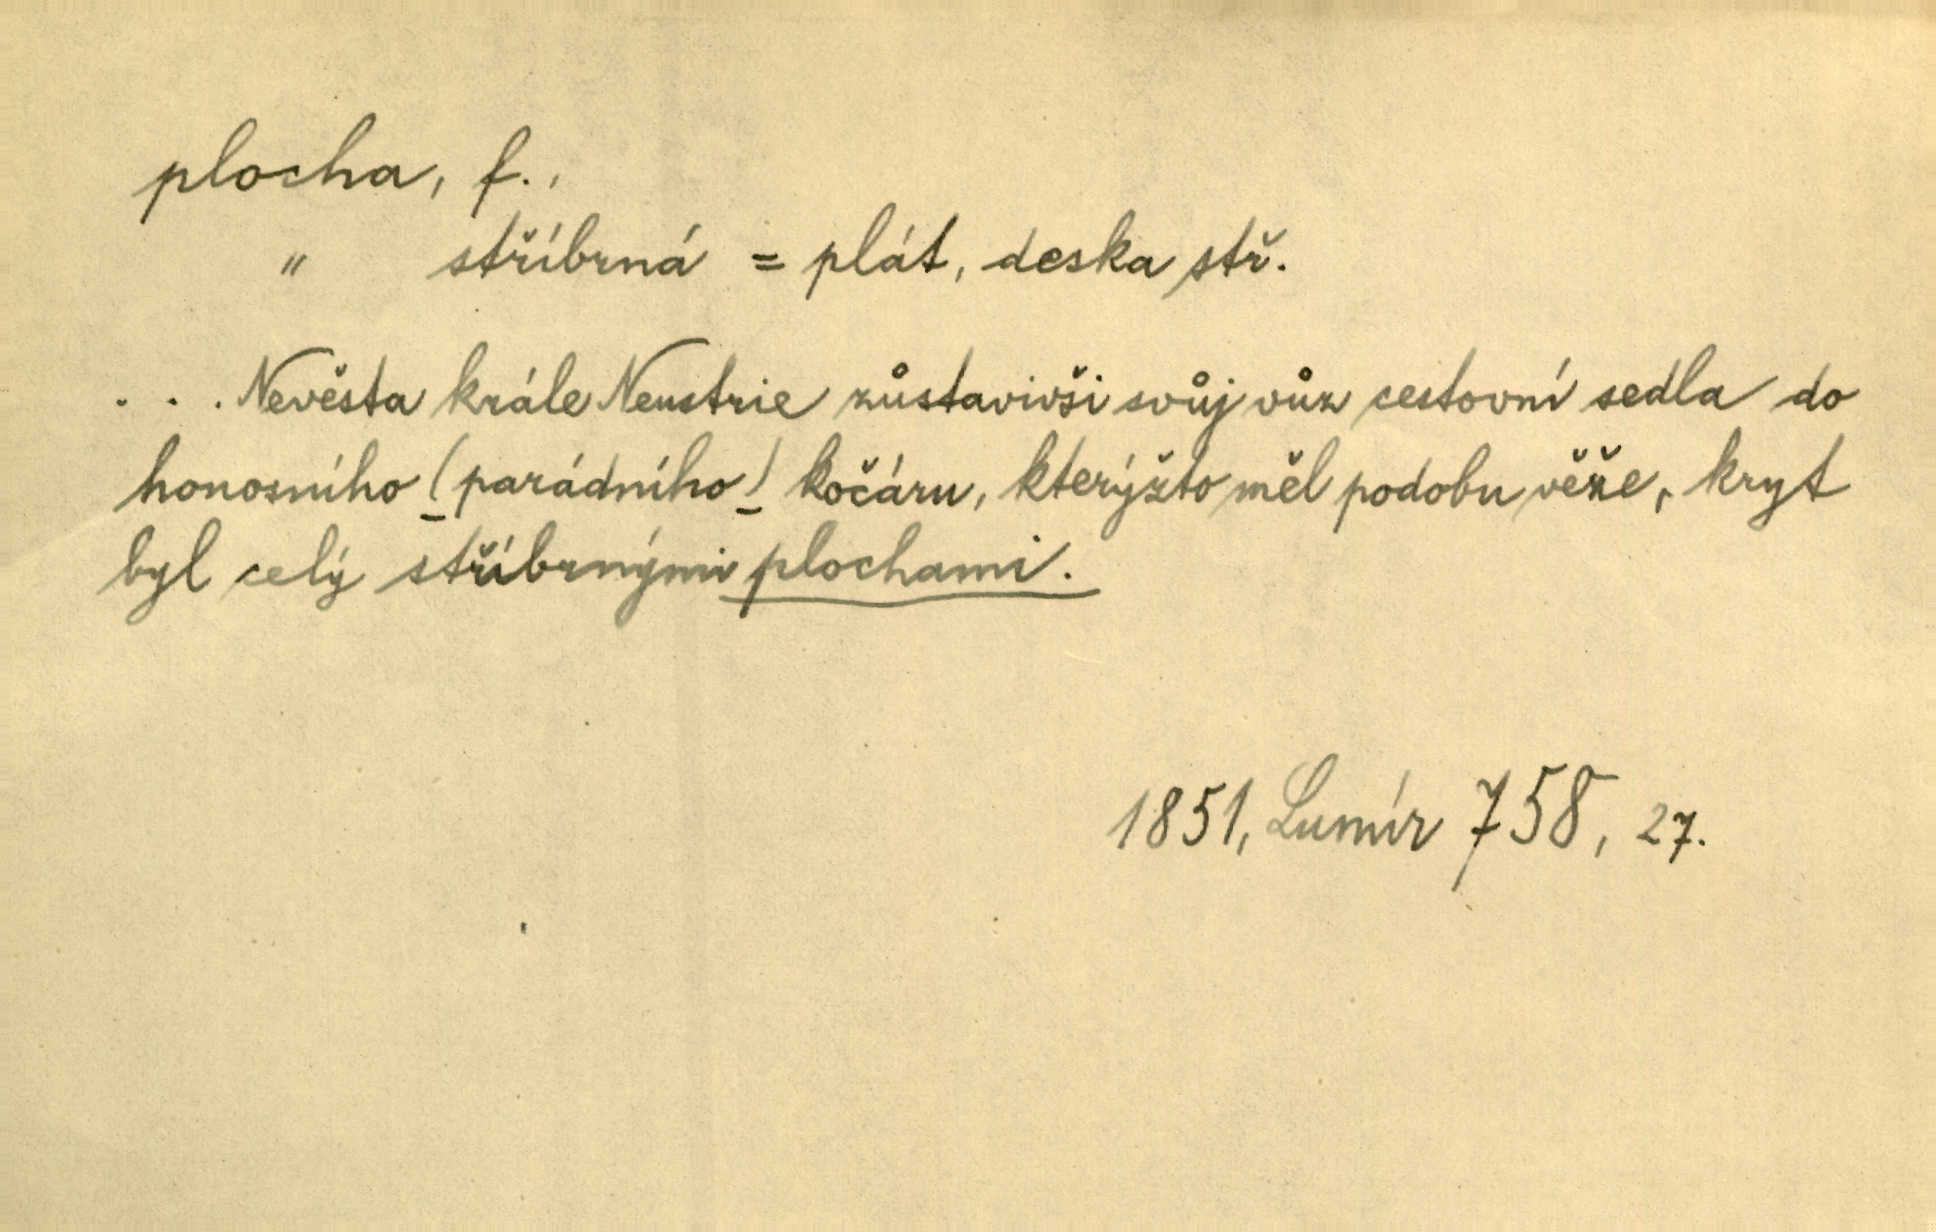 plocha, f.,
" stříbrná = plát, deska stř.
. . . Nevěsta krále Neustrie zůstavivši svůj vůz cestovní sedla do
honosního (parádního) kočáru, kterýžto měl podobu věže, kryt
byl celý stříbrnými plochami.
1851, Lumír 758, 27.